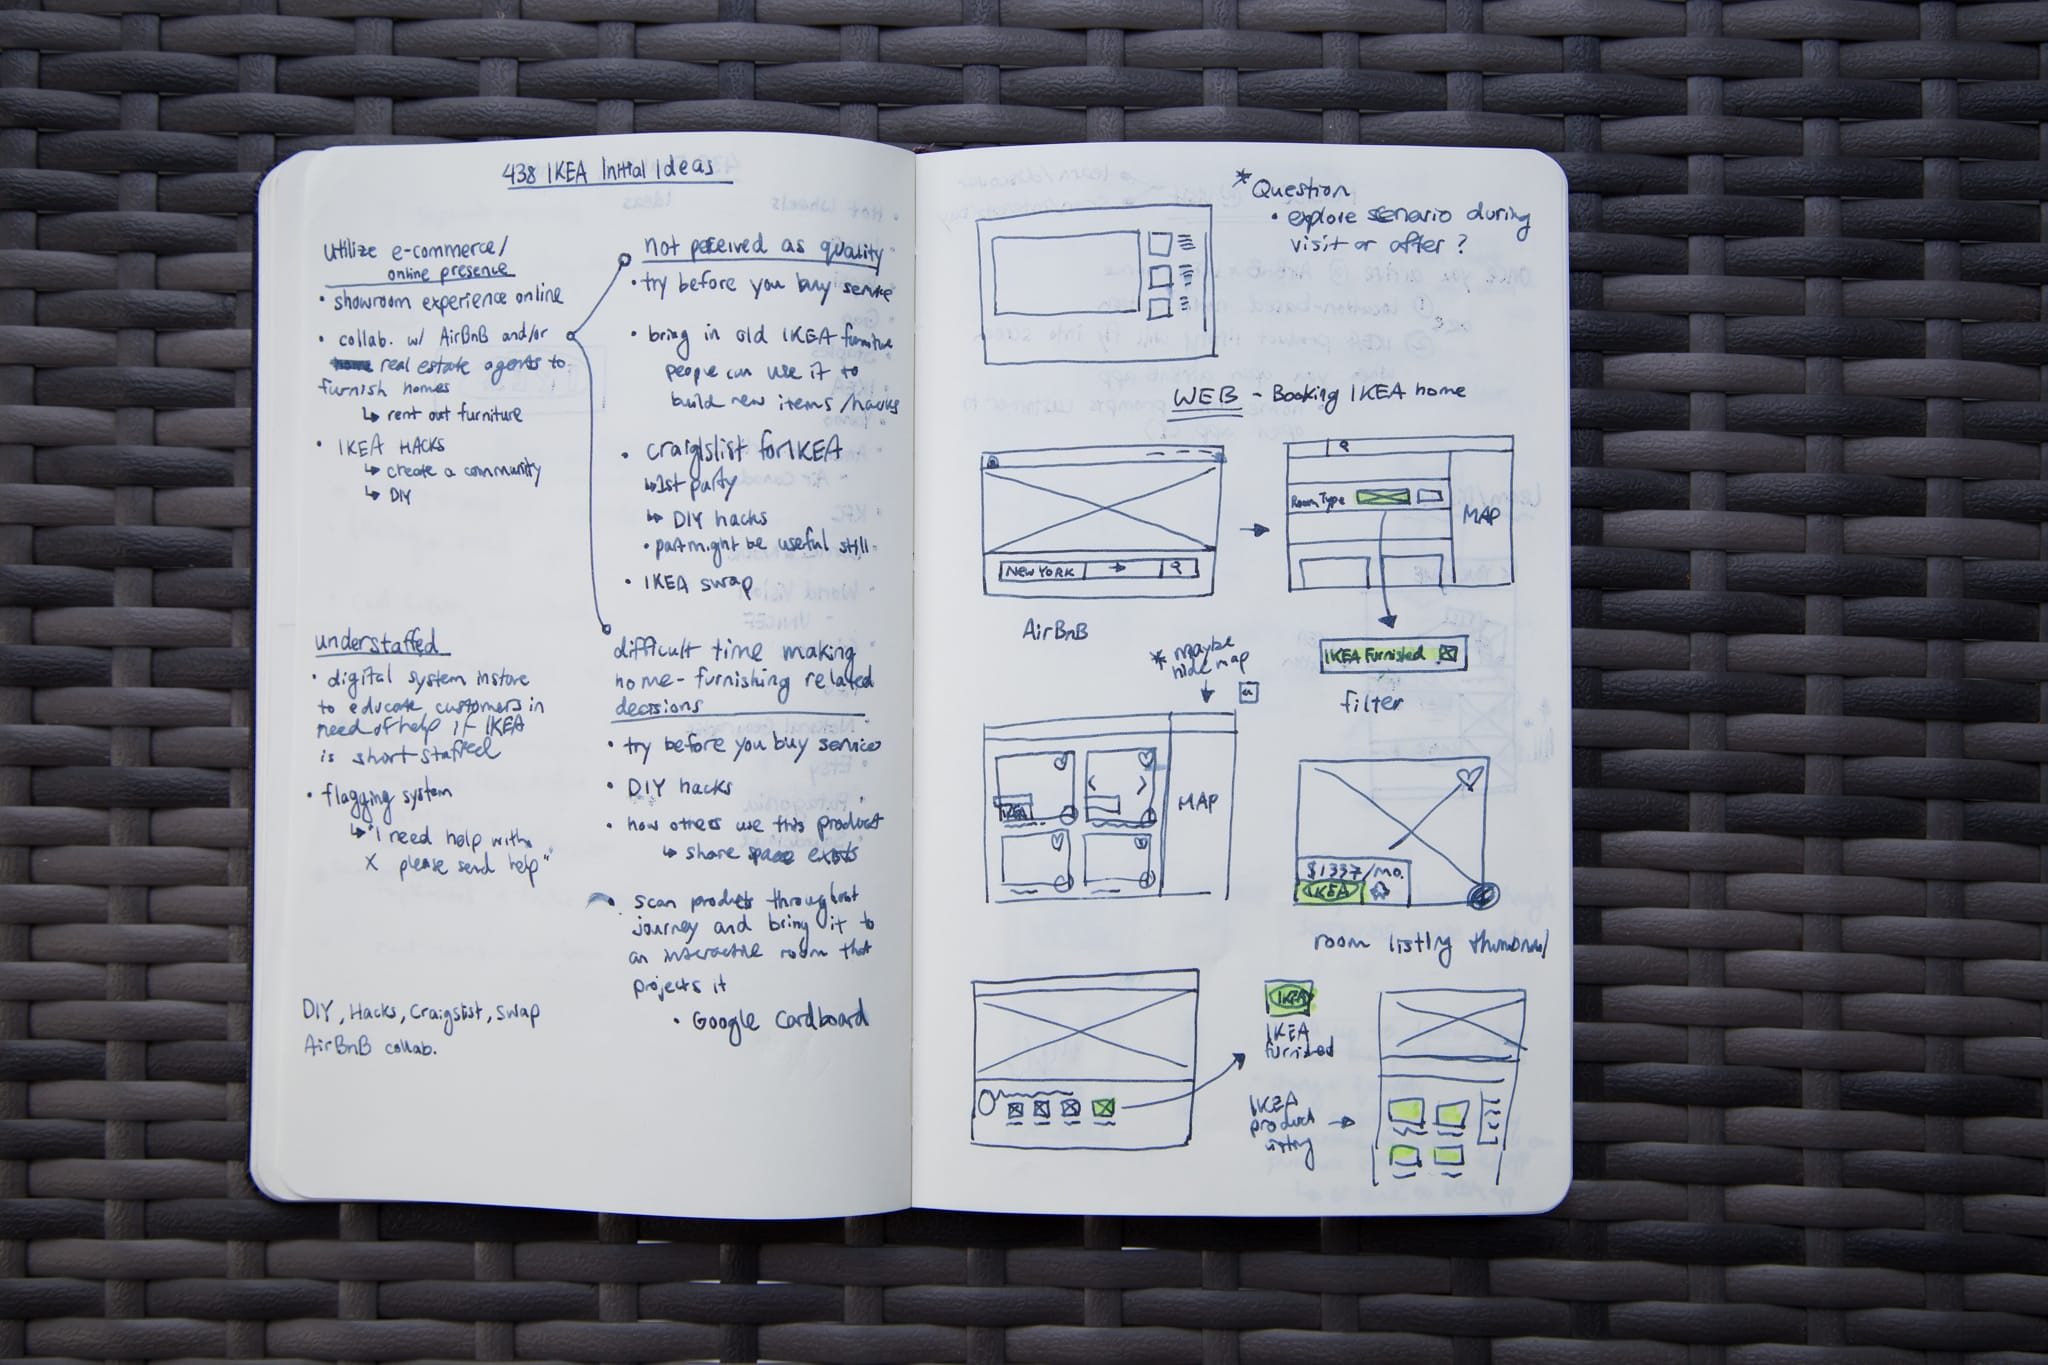 438 IKEA Initial Ideas
Utilize e-commerce/
online presence
• showroom experience online
• collab. w/ AirBnB and/or
real estate agents to
furnish homes
↳ rent out furniture
• IKEA HACKS
↳ create a community
↳ DIY
understaffed
• digital system instore
to educate customers in
need of help if IKEA
is short staffed
• flagging system
↳ "I need help with
X please send help"
DIY, Hacks, Craigslist, swap
AirBnB collab.
not perceived as quality
• try before you buy service
• bring in old IKEA furniture
people can use it to
build new items/hacks
• craigslist for IKEA
↳ 1st party
↳ DIY hacks
• part might be useful still
• IKEA swap
difficult time making
home-furnishing related
decisions
• try before you buy services
• DIY hacks
• how others use this product
↳ share space exists
• scan products throughout
journey and bring it to
an interactive room that
projects it
• Google Cardboard
* Question
• explore scenario during
visit or after?
WEB - Booking IKEA home
NEW YORK
AirBnB
Room Type
MAP
IKEA Furnished
filter
* maybe
hide map
IKEA
MAP
$1337/mo.
IKEA
room listing thumbnail
IKEA
IKEA
furnished
IKEA
product
listing